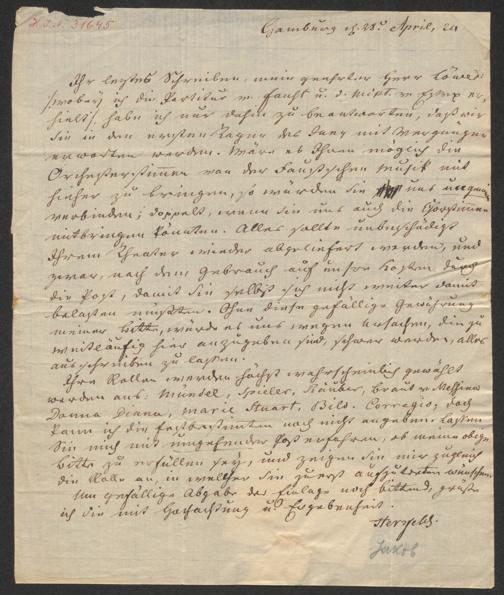 H.I.N. 31645
Hamburg d. 28. April, 24
Ihr letztes Schreiben, mein geehrter Herr Löwe
(wobey ich die Partitur v. Faust u. d. v. Essex er-
hielt) habe ich nur dahin zu beantworten, daß wir
Sie in den ersten Tagen des Juny mit Vergnügen
erwarten werden. Wäre es Ihnen möglich die
Orchesterstimmen von der Faustschen Musik mit
hieher zu bringen, so würden Sie uns ungemein
verbinden; doppelt, wenn Sie uns auch die Chorstimmen
mitbringen könnten. Alles sollte unbeschädigt
Ihrem Theater wieder abgeliefert werden, und
zwar, nach dem Gebrauch auf unsre Kosten durch
die Post, damit Sie selbst sich nicht weiter damit
belasten müßten. Ohne diese gefällige Gewährung
meiner Bitte, würde es uns wegen Ursachen, die zu
weitläufig hier anzugeben sind, schwer werden, alles
ausschreiben zu lassen.
Ihre Rollen werden höchst wahrscheinlich gewählt
werden aus: Mündel, Spieler, Räuber, Braut v. Messina
Donna Diana, Marie Stuart, Bild. Corregio; doch
kann ich die Festbestimmten noch nicht angeben. Lassen
Sie mich mit umgehender Post erfahren, ob meine obige
Bitte zu erfüllen sey, und zeigen Sie mir zugleich
die Rolle an, in welcher Sie zuerst aufzutreten wünschen.
Um gefällige Abgabe der Einlage noch bittend, grüße
ich Sie mit Hochachtung u. Ergebenheit.
Herzfeld.
Jakob